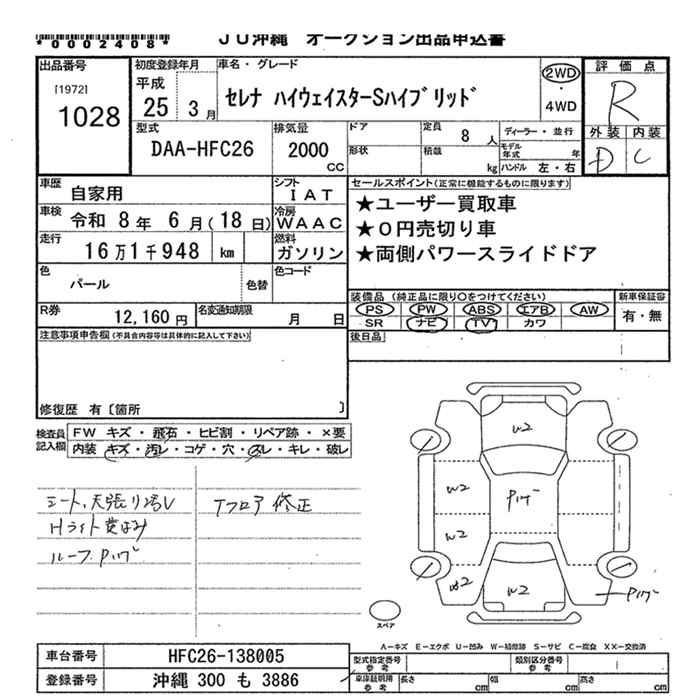 *0002408*
JU沖縄 オークション出品申込書
出品番号
[1972]
1028
初度登録年月
平成
25 3月
車名・グレード
セレナ ハイウェイスターSハイブリッド
2WD
・
4WD
評価点
R
外装 内装
D C
型式
DAA-HFC26
排気量
2000
CC
ドア
形状
定員
8 人
積載
kg
ディーラー・並行
モデル年式 年
ハンドル 左・右
車歴
自家用
シフト
IAT
車検
令和 8年 6月(18日)
冷房
WAAC
走行
16万1千948 km
燃料
ガソリン
色
パール
色替
色コード
R券
12,160円
名変通知期限
月 日
セールスポイント(正常に機能するものに限ります)
★ユーザー買取車
★0円売切り車
★両側パワースライドドア
装備品 (純正品に限り○をつけてください)
PS PW ABS エアB AW
SR ナビ TV カワ
新車保証書
有・無
後日品
注意事項申告欄(不具合内容等は具体的に記入して下さい)
修復歴 有〔箇所 〕
検査員記入欄
FW キズ・飛石・ヒビ割・リペア跡・×要
内装 キズ・汚レ・コゲ・穴・スレ・キレ・破レ
シート、天張り汚レ
Hライト黄ばみ
ルーフPハゲ
Tフロア 修正
W2
W2
Pハゲ
W2
W2
W2
Pハゲ
スペア
A―キズ E―エクボ U―凹み W―補修跡 S―サビ C―腐食 XX―交換済
車台番号
HFC26-138005
登録番号
沖縄 300 も 3886
型式指定番号
参考
類別区分番号
参考
車庫証明用
参考
長さ cm
幅 cm
高さ cm